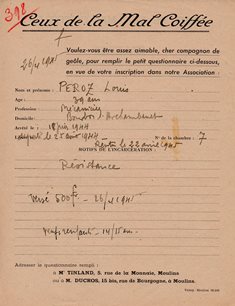 398
Ceux de la Mal Coiffée
26/4 1945
Voulez-vous être assez aimable, cher compagnon de
geôle, pour remplir le petit questionnaire ci-dessous,
en vue de votre inscription dans notre Association :
Nom et prénoms : PEROZ Louis
Age : 39 ans
Profession : Mécanicien
Domicile : Bourbon l'Archambault
Arrêté le : 1944
août 1944
N° de la chambre : 7
Rentré le 22 avril 1945
MOTIFS DE L'INCARCÉRATION :
Résistance
versé 500 f - 26/4 1945
Adresser le questionnaire rempli :
à Mr TINLAND, 5, rue de la Monnaie, Moulins
ou à M. DUCROS, 15 bis, rue de Bourgogne, à Moulins.